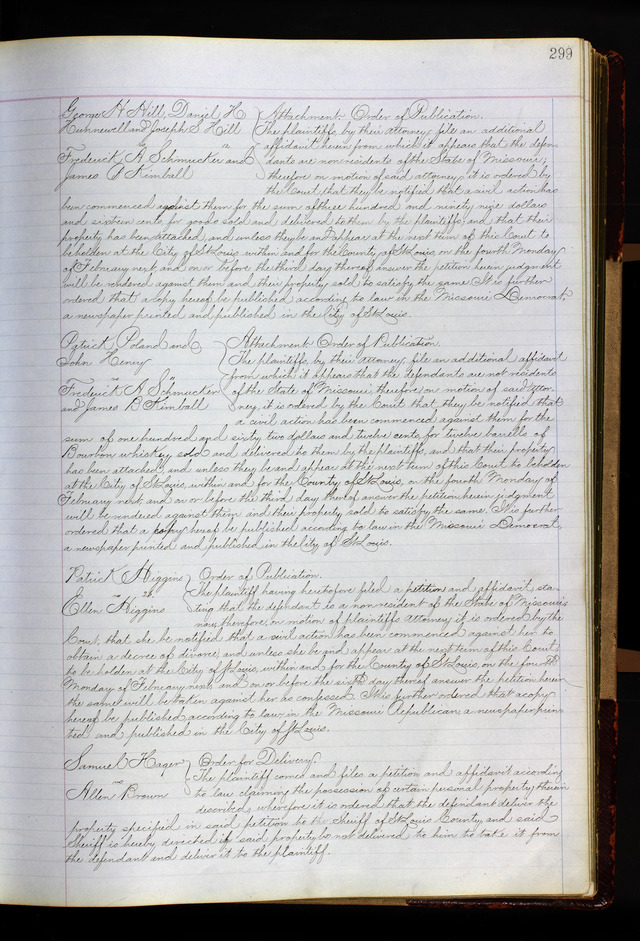 299
George H Hill, Daniel H
Hunnewell and Joseph S Hill
vs
Frederick A Schmucker and
James B Kimball
Attachment. Order of Publication.
The plaintiffs, by their attorney, file an additional
affidavit herein from which it appears that the defen-
dants are non residents of the State of Missouri;
therefore on motion of said attorney, it is ordered by
the Court, that they be notified that a civil action has
been commenced against them for the sum of three hundred and ninety nine dollars
and sixteen cents, for goods sold and delivered to them by the plaintiffs, and that their
property has been attached, and unless they be and appear at the next term of this Court to
be holden at the City of St Louis within and for the County of St Louis, on the fourth Monday
of February next, and on or before the third day thereof answer the petition herein judgment
will be rendered against them and their property sold to satisfy the same. It is further
ordered that a copy hereof be published according to law in the Missouri Democrat,
a newspaper printed and published in the City of St Louis.
Patrick Poland and
John Henry
vs
Frederick A Schmucker
and James B Kimball
Attachment. Order of Publication.
The plaintiffs, by their attorney, file an additional affidavit
from which it appears that the defendants are not residents
of the State of Missouri, therefore on motion of said attor-
ney, it is ordered by the Court that they be notified that
a civil action has been commenced against them for the
sum of one hundred and sixty two dollars and twelve cents, for twelve barells of
Bourbon whiskey, sold and delivered to them by the plaintiffs, and that their property
has been attached, and unless they be and appear at the next term of this Court to be holden
at the City of St Louis, within and for the County of St Louis, on the fourth Monday of
February next, and on or before the third day thereof answer the petition herein judgment
will be rendered against them and their property sold to satisfy the same. It is further
ordered that a copy hereof be published according to law in the Missouri Democrat,
a newspaper printed and published in the City of St Louis.
Patrick Higgins
vs
Ellen Higgins
Order of Publication.
The plaintiff having heretofore filed a petition and affidavit sta-
ting that the defendant is a non resident of the State of Missouri;
now, therefore, on motion of plaintiffs attorney it is ordered by the
Court, that she be notified that a civil action has been commenced against her to
obtain a decree of divorce, and unless she be and appear at the next term of this Court
to be holden at the City of St Louis, within and for the County of St Louis, on the fourth
Monday of February next, and on or before the sixth day thereof answer the petition herein
the same will be taken against her as confessed. It is further ordered that a copy
hereof be published according to law in the Missouri Republican, a newspaper prin-
ted and published in the City of St Louis.
Samuel Hager
vs
Allen Brown
Order for Delivery
The plaintiff comes and files a petition and affidavit according
to law claiming the possession of certain personal property therein
described, wherefore it is ordered that the defendant deliver the
property specified in said petition to the Sheriff of St Louis County, and said
Sheriff is hereby directed if said property be not delivered to him to take it from
the defendant and deliver it to the plaintiff.